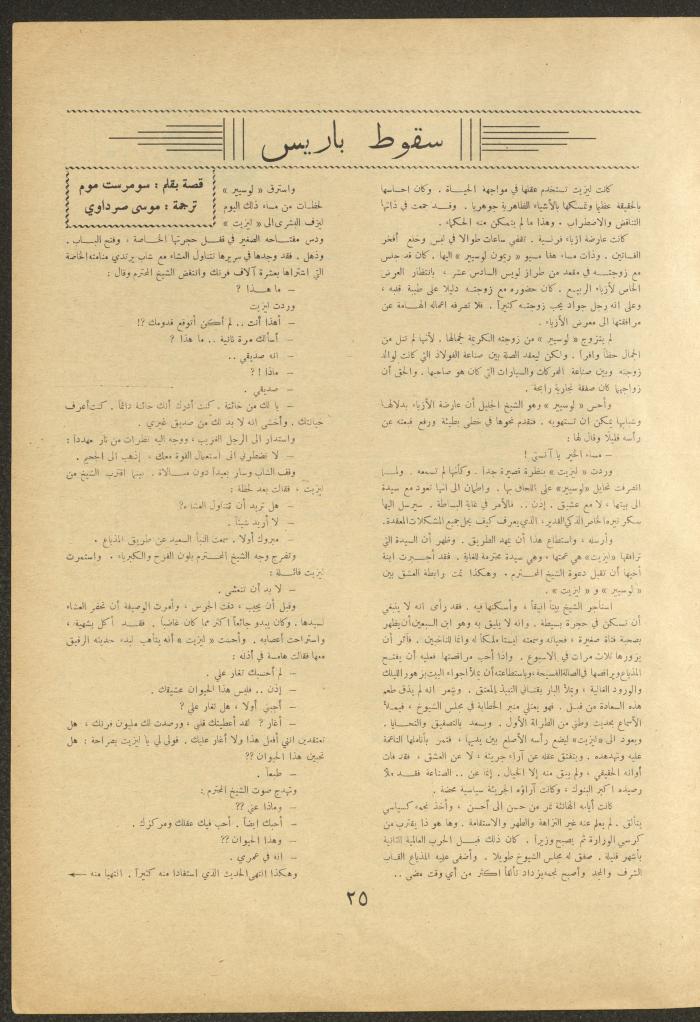 سقوط باريس
قصة بقلم : سومرست موم
ترجمة : موسى صرداوي
كانت ليزيت تستخدم عقلها في مواجهة الحياة . وكان احساسها
بالحقيقة عظيا وتمسكها بالأشياء الظاهرية جوهريا . وقد جمعت في ذاتها
التناقض والاضطراب . وهذا ما لم يتمكن منه الحكماء .
كانت عارضة ازياء فرنسية . تقضي ساعات طوالا في لبس وخلع أفخر
الفساتين . وذات مساء هفا مسيو « ريمون لوسيير » اليها . كان قد جلس
مع زوجته في مقعد من طراز لويس السادس عشر ، بانتظار العرض
الخاص لأزياء الربيع . كان حضوره مع زوجته دليلا على طيبة قلبه ،
وعلى انه رجل جواد يحب زوجته كثيراً . فلا تصرفه اعماله الهامة عن
مرافقتها الى معرض الأزياء .
لم يتزوج « لوسيير » من زوجته الكريمة لجمالها . لأنها لم تنل من
الجمال حظاً وافراً . ولكن ليعقد الصلة بين صناعة الفولاذ التي كانت لوالد
زوجته وبين صناعة المحركات والسيارات التي كان هو صاحبها . والحق أن
زواجهما كان صفقة تجارية رابحة .
وأحس « لوسيير » وهو الشيخ الجليل أن عارضة الأزياء بدلالها
وشبابها يمكن ان تستهويه . فتقدم نحوها في خطى بطيئة ورفع قبعته عن
رأسه قليلا وقال لها :
– مساء الخير يا آنستي !
وردت « ليزيت » بنظرة قصيرة جداً . وكأنها لم تسمعه . ولما
انصرفت تحايل «لوسيير» على اللحاق بها . واطمأن الى انها تعود مع سيدة
الى بيتها ، لا مع عشيق . إذن .. فالأمر في غاية البساطة . سيرسل اليها
سكرتيره الخاص الذكي القدير ، الذي يعرف كيف يحل جميع المشكلات المعقدة.
وأرسله ، واستطاع هذا أن يمهد الطريق . وظهر أن السيدة التي
ترافقها «ليزيت» هي عمتها ، وهي سيدة محترمة للغاية . فقد أجبرت ابنة
أخيها أن تقبل دعوة الشيخ المحترم . وهكذا تمت رابطة العشق بين
« لوسيير » و « ليزيت » .
استأجر الشيخ بيتاً انيقاً ، وأسكنها فيه . فقد رأى انه لا ينبغي
أن تسكن في حجرة بسيطة . وانه لا يليق به وهو ابن السبعين أن يظهر
بصحبة فتاة صغيرة ، فحياته وسمعته ليستا ملكاً له وانما للناخبين . فآثر أن
يزورها ثلاث مرات في الاسبوع . وإذا أحب مراقصتها فعليه أن يفتح
المذياع ويراقصها في الصالة الفسيحة، وباستطاعته أن يملأ اجواء البيت بزهور الليلك
والورود الغالية ، ويملأ البار بقناني النبيذ المعتق . وشعر انه لم يذق طعم
هذه السعادة من قبل . فهو يعتلي منبر الخطابة في مجلس الشيوخ ، فيملأ
الأسماع بحديث وطني من الطراز الأول . ويسعد بالتصفيق والتحايا .
ويعود الى «ليزيت» ليضع رأسه الأصلع بين يديها ، فتمر بأناملها الناعمة
عليه وتهدهده . ويتفتق عقله عن آراء جريئة ، لا عن العشق ، فقد فات
أوانه الحقيقي ، ولم يبق منه إلا الخيال . إنما عن .. الصناعة فقد ملأ
رصيده اكبر البنوك ، وكانت آراؤه الجريئة سياسية محضة .
كانت أيامه الهانئة تمر من حسن إلى أحسن ، وأخذ نجمه كسياسي
يتألق . لم يعلم عنه غير النزاهة والطهر والاستقامة . وها هو ذا يقترب من
كرسي الوزارة ثم يصبح وزيراً . كان ذلك قبل الحرب العالمية الثانية
بأشهر قليلة . صفق له مجلس الشيوخ طويلا . وأضفى عليه المذياع القاب
الشرف والمجد وأصبح نجمه يزداد تألقاً اكثر من أي وقت مضى ..
واسترق « لوسيير »
لحظات من مساء ذلك اليوم
ليزف البشرى الى « ليزيت »
ودس مفتاحه الصغير في قفل حجرتها الخاصة ، وفتح الباب .
وذهل . فقد وجدها في سريرها تتناول العشاء مع شاب يرتدي منامته الخاصة
التي اشتراها بعشرة آلاف فرنك وانتفض الشيخ المحترم وقال :
– ما هذا ؟
وردت ليزيت
– أهذا أنت .. لم أكن أتوقع قدومك ؟!
– أسألك مرة ثانية .. ما هذا ؟
– انه صديقي ..
– ماذا ! ؟
– صديقي .
– يا لك من خائنة . كنت أدرك أنك خائنة دائماً . كنت أعرف
خيانتك . وأخشى انه لا بد لك من صديق غيري .
واستدار الى الرجل الغريب ، ووجه اليه نظرات من نار مهددا :
– لا تضطرني الى استعمال القوة معك ، إذهب الى الجحيم .
وقف الشاب وسار بعيداً دون مبالاة . بينما اقترب الشيخ من
ليزيت ، فقالت بعد لحظة :
– هل تريد أن تتناول العشاء ؟
– لا أريد شيئاً .
– مبروك أولا . سمعت النبأ السعيد عن طريق المذياع .
وتفرج وجه الشيخ المحترم بلون الفرح والكبرياء . واستمرت
ليزيت قائلة :
– لا بد أن تتعشى .
وقبل أن يجيب ، دقت الجرس ، وأمرت الوصيفة أن تحضر العشاء
لسيدها . وكان يبدو جائعاً اكثر مما كان غاضبا . فقد اكل بشهية ،
واستراحت أعصابه . وأحست « ليزيت » أنه يتأهب لبدء حديثه الرقيق
معها فقالت هامسة في أذنه :
– لم أحسبك تغار علي .
– إذن .. فليس هذا الحيوان عشيقك .
– أجبني أولا ، هل تغار علي ؟
– أغار ؟ لقد أعطيتك قلبي ، ورصدت لك مليون فرنك ، هل
تعتقدين انني أفعل هذا ولا أغار عليك . قولي لي يا ليزيت بصراحة : هل
تحبين هذا الحيوان ??
– طبعاً .
وتهدج صوت الشيخ المحترم :
– وماذا عني ??
– أحبك ايضاً . أحب فيك عقلك ومركزك .
– وهذا الحيوان ??
– إنه في عمري .
وهكذا انتهى الحديث الذي استفادا منه كثيراً . انتهيا منه ←
٢٥